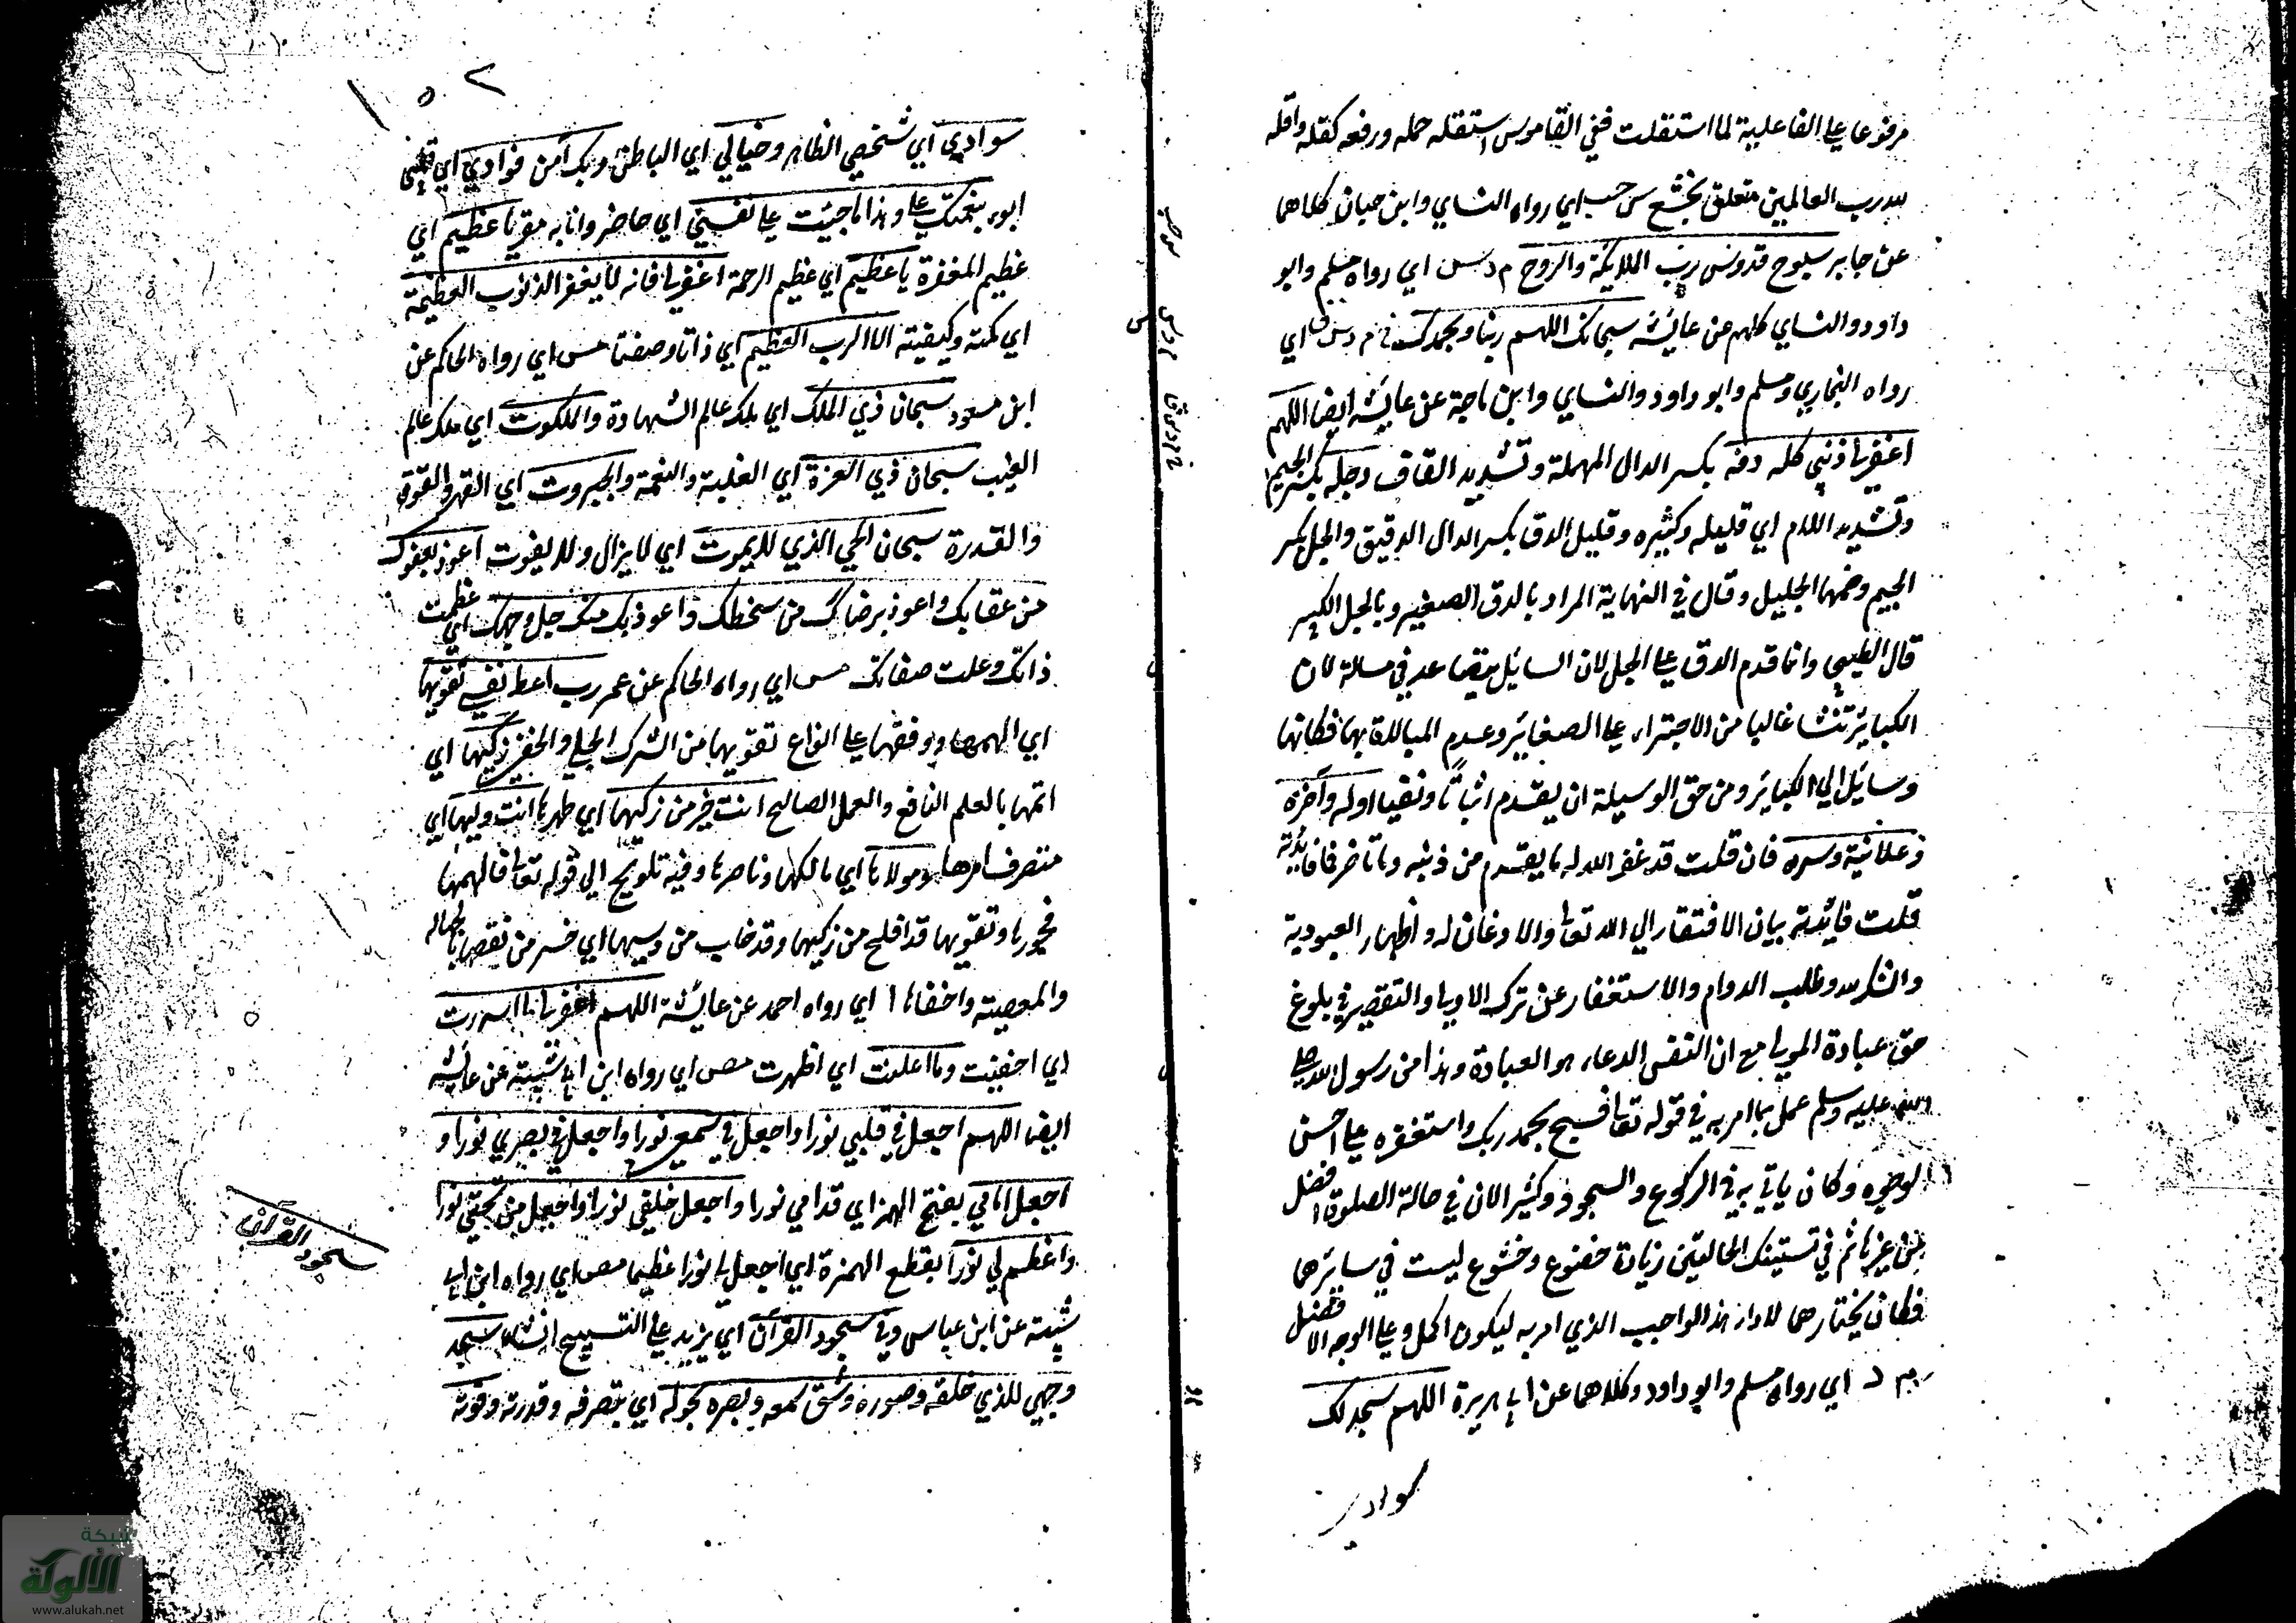 مرفوعا علي الفاعلية لما استقلت ففي القاموس استقله حمله ورفعه كقله واقله
لله رب العالمين متعلق بخشع س حب اي رواه النساي وابن حبان كلاهما
عن جابر سبوح قدوس رب الملايكة والروح م د س اي رواه مسلم وابو
داود والنساي كلهم عن عايشة سبحانك اللهم ربنا وبحمدك خ م د س ق اي
رواه البخاري ومسلم وابو داود والنساي وابن ماجة عن عايشة ايضا اللهم
اغفر لي ذنبي كله دقه بكسر الدال المهملة وتشديد القاف وجله بكسر الجيم
وتشديد اللام اي قليله وكثيره وقيل الدق بكسر الدال الدقيق والجل بكسر
الجيم وضمها الجليل وقال في النهاية المراد بالدق الصغير وبالجل الكبير
قال الطيبي وانما قدم الدق علي الجل لان السايل يتصاعد في مسالة لان
الكباير تنشا غالبا من الاجتراء علي الصغاير وعدم المبالاة بها فكانها
وسايل الي الكباير ومن حق الوسيلة ان يقدم اثباتا ونفيا اوله وآخره
وعلانية وسره فان قلت قد غفر الله له ما يقدم من ذنبه وما تاخر فما فايدته
قلت فايدته بيان الافتقار الي الله تعالي والاذعان له واظهار العبودية
والشكر وطلب الدوام والاستغفار عن ترك الاولي والتقصير في بلوغ
حق عبادة المولي مع ان النفس الدعاء هو العبادة وهذا من رسول الله صلي
الله عليه وسلم عمل بما امر به في قوله تعالي فسبح بحمد ربك واستغفره علي احسن
الوجوه وكان ياتي به في الركوع والسجود وكثير الان في حالة الصلوة افضل
من غيرها ثم في تستينك الحالتين زيادة خضوع وخشوع ليست في سايرها
فكان يختارهما لاداء هذا الواجب الذي امر به ليكون اكمل وعلي الوجه الافضل
م د اي رواه مسلم وابو داود وكلاهما عن ابي هريرة اللهم سجد لك
سوادي
س حب
م د س
خ م د س ق
١٥٢
سوادي اي شخصي الظاهر وخيالي اي الباطن وبك آمن فوادي اي قلبي
ابوء بنعمتك علي وهذا ما جنيت علي نفسي اي حاضر وانا به مقر يا عظيم اي
عظيم المغفرة يا عظيم اي عظيم الرحمة اغفر لي فانه لا يغفر الذنوب العظيمة
اي كمته وكيفيته الا الرب العظيم اي ذاتا وصفتا مس اي رواه الحاكم عن
ابن مسعود سبحان ذي الملك اي ملك عالم الشهادة والملكوت اي ملك عالم
الغيب سبحان ذي العزة اي الغلبة والنعمة والجبروت اي القهر والقوة
والقدرة سبحان الحي الذي لا يموت اي لا يزال ولا يفوت اعوذ بعفوك
من عقابك واعوذ برضاك من سخطك واعوذ بك منك جل وجهك اي عظمت
ذاتك وعلت صفاتك مس اي رواه الحاكم عن عمر رب اعط نفسي تقويها
اي الهمها ووفقها علي انواع تقويها من الشرك الجلي والخفي زكيها اي
اتمها بالعلم النافع والعمل الصالح انت خير من زكيها اي طهرها انت وليها اي
متصرف امرها ومولاها اي مالكها وناصرها وفيه تلويح الي قوله تعالي فالهمها
فجورها وتقويها قد افلح من زكيها وقد خاب من دسيها اي خسر من نقصها بالجهالة
والمعصية واخفاها ا اي رواه احمد عن عايشة اللهم اغفر لي ما اسررت
اي اخفيت وما اعلنت اي اظهرت مص اي رواه ابن ابي شيبة عن عايشة
ايضا اللهم اجعل في قلبي نورا واجعل في سمعي نورا واجعل في بصري نورا و
اجعل امامي بفتح الهمز اي قدامي نورا واجعل خلفي نورا واجعل من تحتي نورا
واعظم لي نورا بقطع الهمزة اي اجعل لي نورا عظيما مص اي رواه ابن ابي
شيبة عن ابن عباس وفي سجود القرآن اي يزيد علي التسبيح انشاء سجد
وجهي للذي خلقه وصوره وشق سمعه وبصره بحوله اي بتصرفه وقدرته وقوته
سجود القرآن
شبكة
الألوكة
www.alukah.net